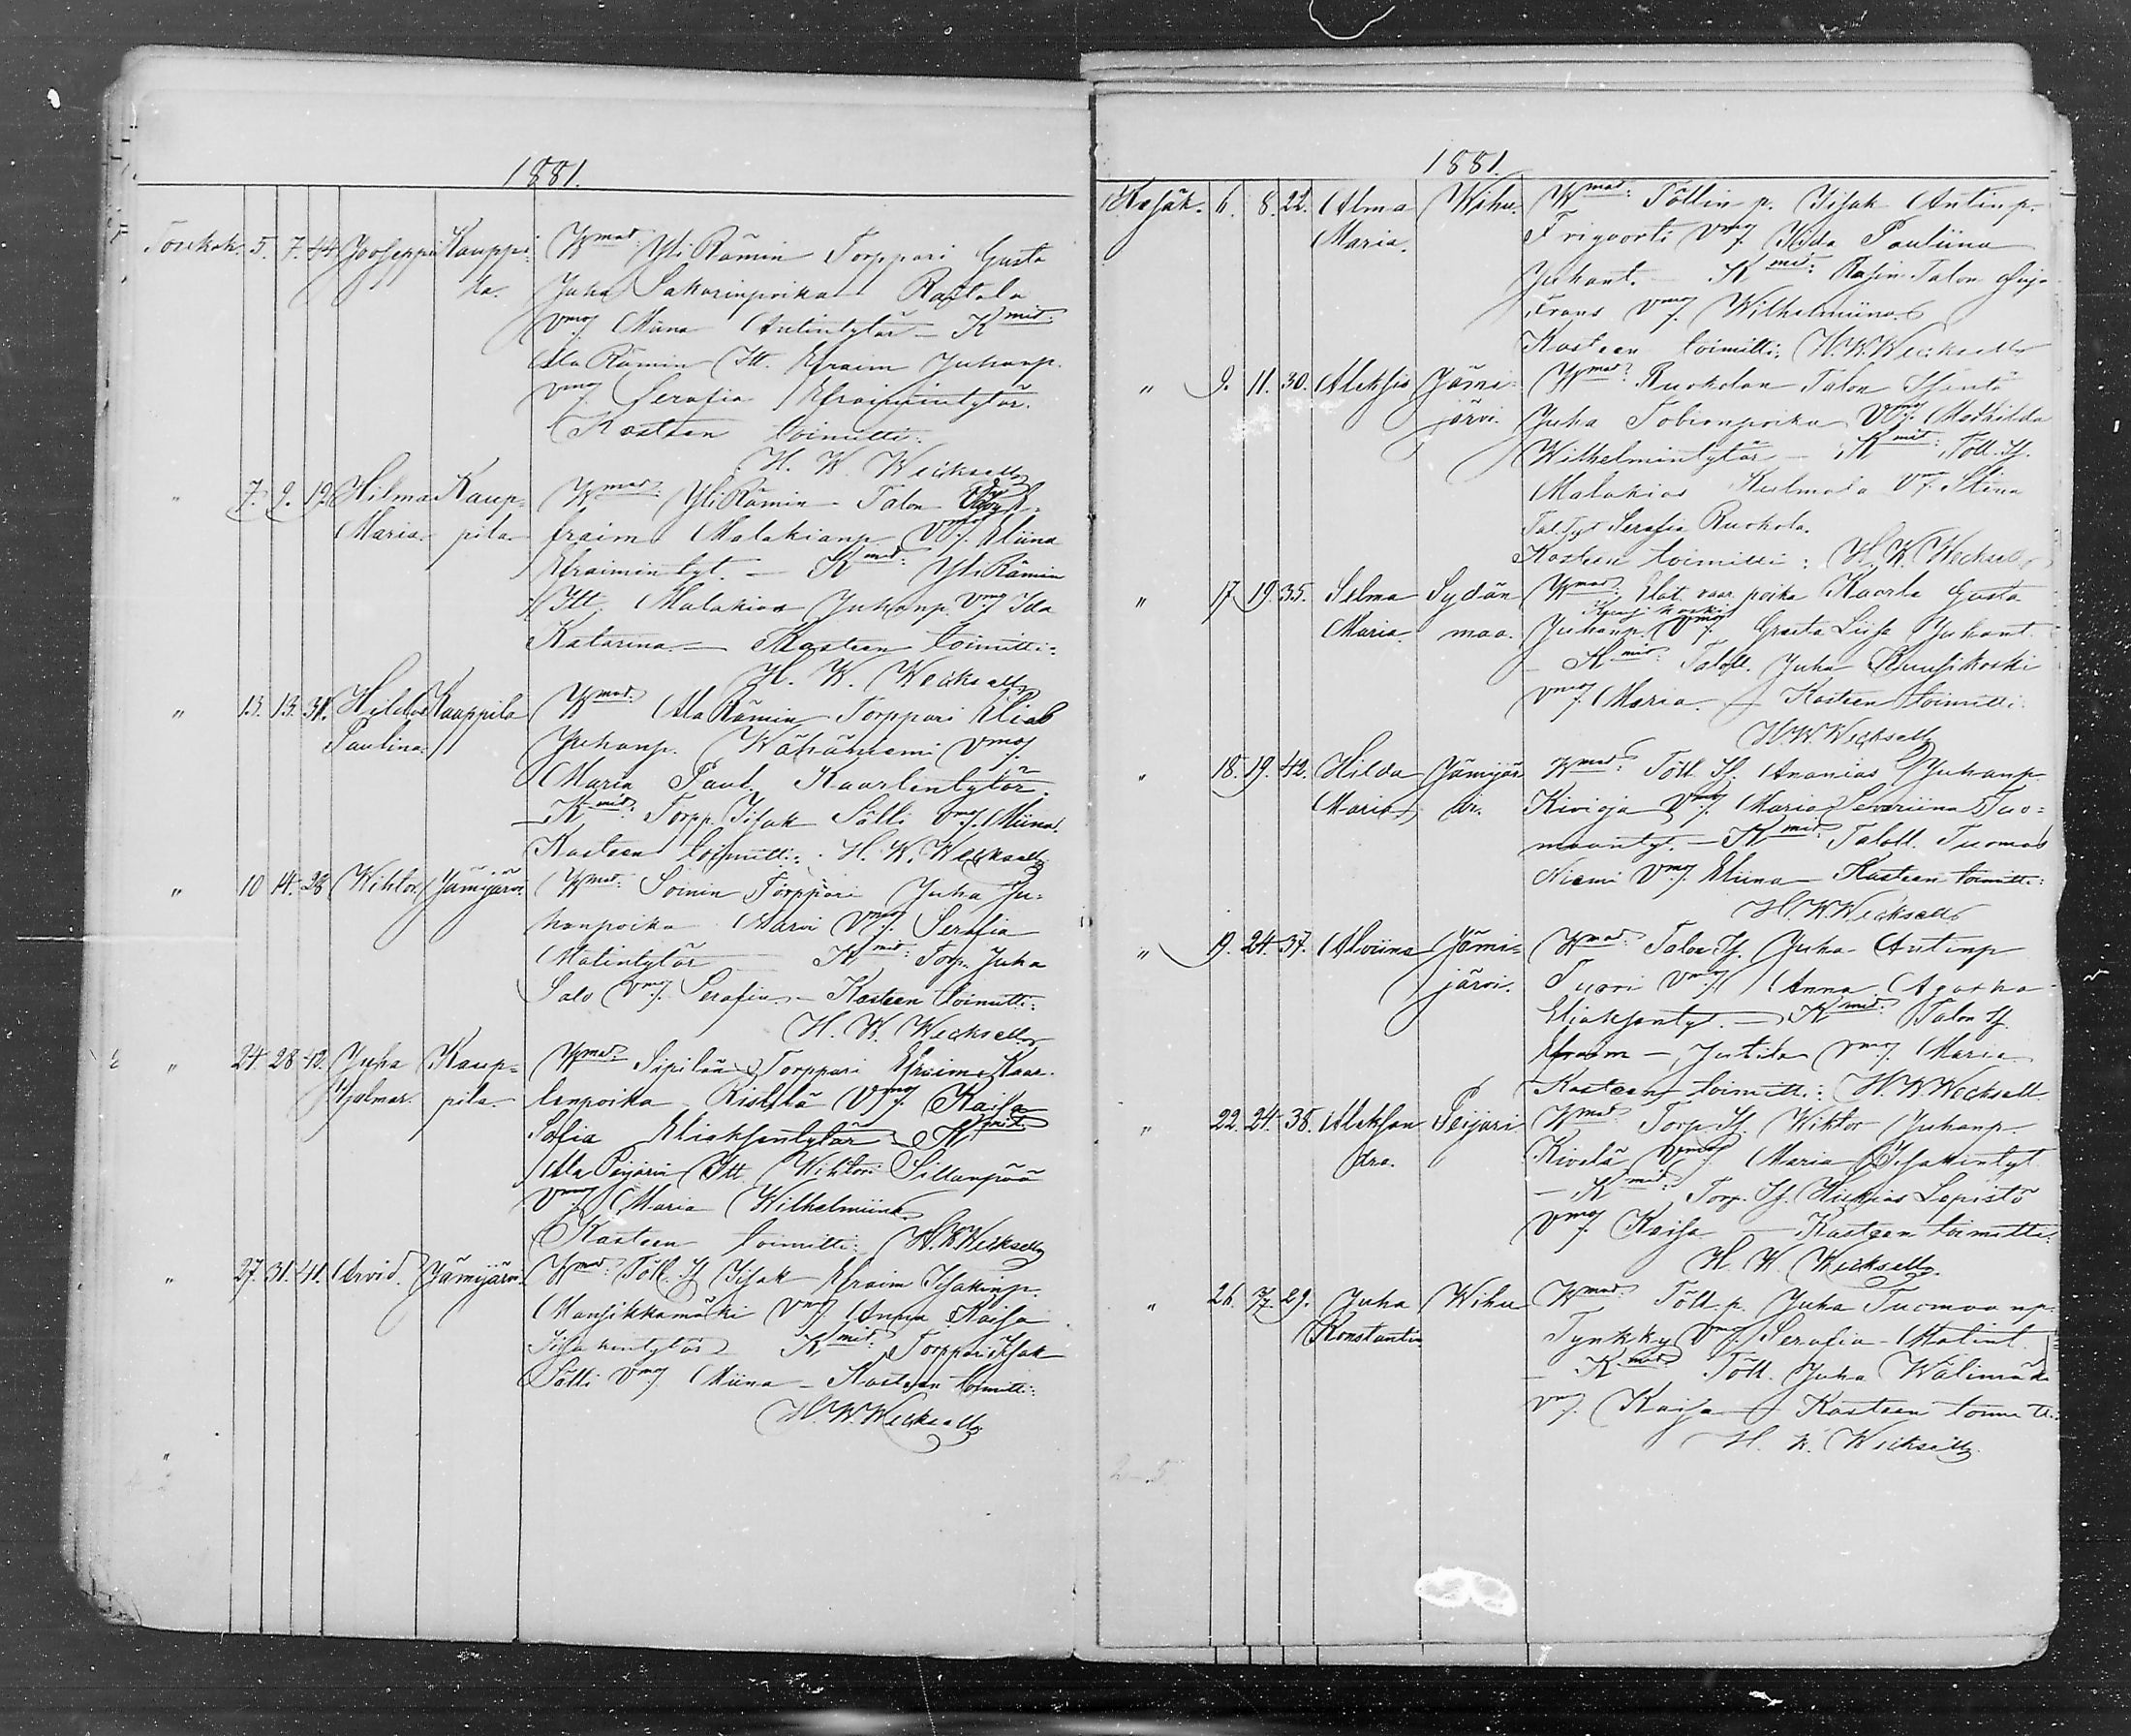 1881.
Toukok. 5. 7. 44. Jooseppi Kauppi- Wmat: Yli Rämin Torppari Gusta
la. Juha Sakarinpoika Rajtala
vmoj Miina Antintytär – Kmit:
Ala Rämin Itt. Efraim Juhanp.
vmoj Serafia Efraimintytär.
Kasteen toimitti:
H. W. Wecksell
" 7. 9. 19. Hilma Kaup- Wmat: Yli Rämin Talon E-
Maria. pila. fraim Malakianp. Vmoj. Eliina
Efraimin tyt. – Kmit: Yli Rämin
Itt. Malakias Juhanp. Vmoj Ida
Katarina. – Kasteen toimitti:
H. W. Wecksell
" 13. 15. 31. Hilda Kauppila Wmat: Ala Rämin Torppari Elias
Paulina. Juhanp. Kähäniemi Vmoj.
Maria Paul. Kaarlentytär.
– Kmit: Torpp. Iisak Sälli Vmoj. Miina.
Kasteen toimitti: H. W. Wecksell
" 10 14. 28 Wihtor. Jämijärvi. Wmat: Soinin Torppari Juha Ju-
hanpoika Marvi Vmoj. Serafia
Matintytär Kmit: Torp. Juha
Salo Vmoj. Serafia – Kasteen toimitti:
H. W. Wecksell
" 24. 28. 42. Juha Kaup- Wmat: Sipilän Torppari Efraim Kaar-
Hjalmar. pila. lenpoika Ristilä Vmoj. Kaisa
Sofia Eliaksentytär – Kmit:
Ala Peijarin Itt. Wihtori Sillanpää
Vmoj Maria Wilhelmiina
Kasteen toimitti: H. W. Wecksell
" 27. 31. 41. Arvid. Jämijärvi. Wmat: Töll. Iisak Efraim Isakinp.
Mansikkamäki Vmoj Anna Kaisa
Iisakintytär Kmit: Torppari Isak
Sälli Vmoj Miina – Kasteen toimitti:
H. W. Wecksell
"
1881.
Kesäk. 6. 8. 22. Alma Wihu. Wmat: Töllin p. Iisak Antinp.
Maria. Frigvorti Vmoj. Ida Pauliina
Juhant. – Kmit: Rasin Talon
Frans Vmoj. Wilhelmiina
Kasteen toimitti: H. W. Wecksell
" 9. 11. 30. Aleksis Jämi- Wmat: Ruokolan Talon Isäntä
järvi. Juha Tobianpoika Vmoj. Mathilda
Wilhelmintytär – Kmit: Töll. Is.
Malakias Vmoj. Stina
Tal. Tyt Serafia Ruokola.
Kasteen toimitti: H. W. Wecksell
" 17 19. 35. Selma Sydän Wmat: Elat. vaar. poika Kaarle Gusta
Maria. maa. Juhanp. Vmoj. Greeta Liisa Juhant.
– Kmit: Taloll. Juha Ruusikoski
Vmoj. Maria. – Kasteen toimitti:
H. W. Wecksell
" 18. 19. 42. Hilda Jämijär Wmat: Töll. Is. Ananias Juhanp.
Maria. vi. Kivioja Vmoj. Maria Severiina Tuo-
maanty. – Kmit: Taloll. Tuomas
Niemi Vmoj. Eliina – Kasteen toimitti:
H. W. Wecksell
" 19. 24. 37. Alviina Jämi- Wmat: Talon Is. Juha Antinp
järvi. Tuori Vmoj. Anna Agatha
Eliaksentyt. – Kmit: Talon Is.
Efraim – Jutila Vmoj. Maria
Kasteen toimitti: H. W. Wecksell
" 22. 24. 38. Aleksan Peijari. Wmat: Torp. Is. Wiktor Juhanp.
dra. Kivelä Vmoj Maria Isakintyt
– Kmit: Torp. Is. Hiskias Lepistö
Vmoj. Kaisa – Kasteen toimitti:
H. W. Wecksell
" 26. 29. Juha Wihu Wmat: Töll. p. Juha Tuomaanp.
Konstantin. Tynkky Vmoj. Serafia Matint.
– Kmit: Töll. Juha Wälimäki
Vmoj. Kaisa – Kasteen toimitti:
H. W. Wecksell